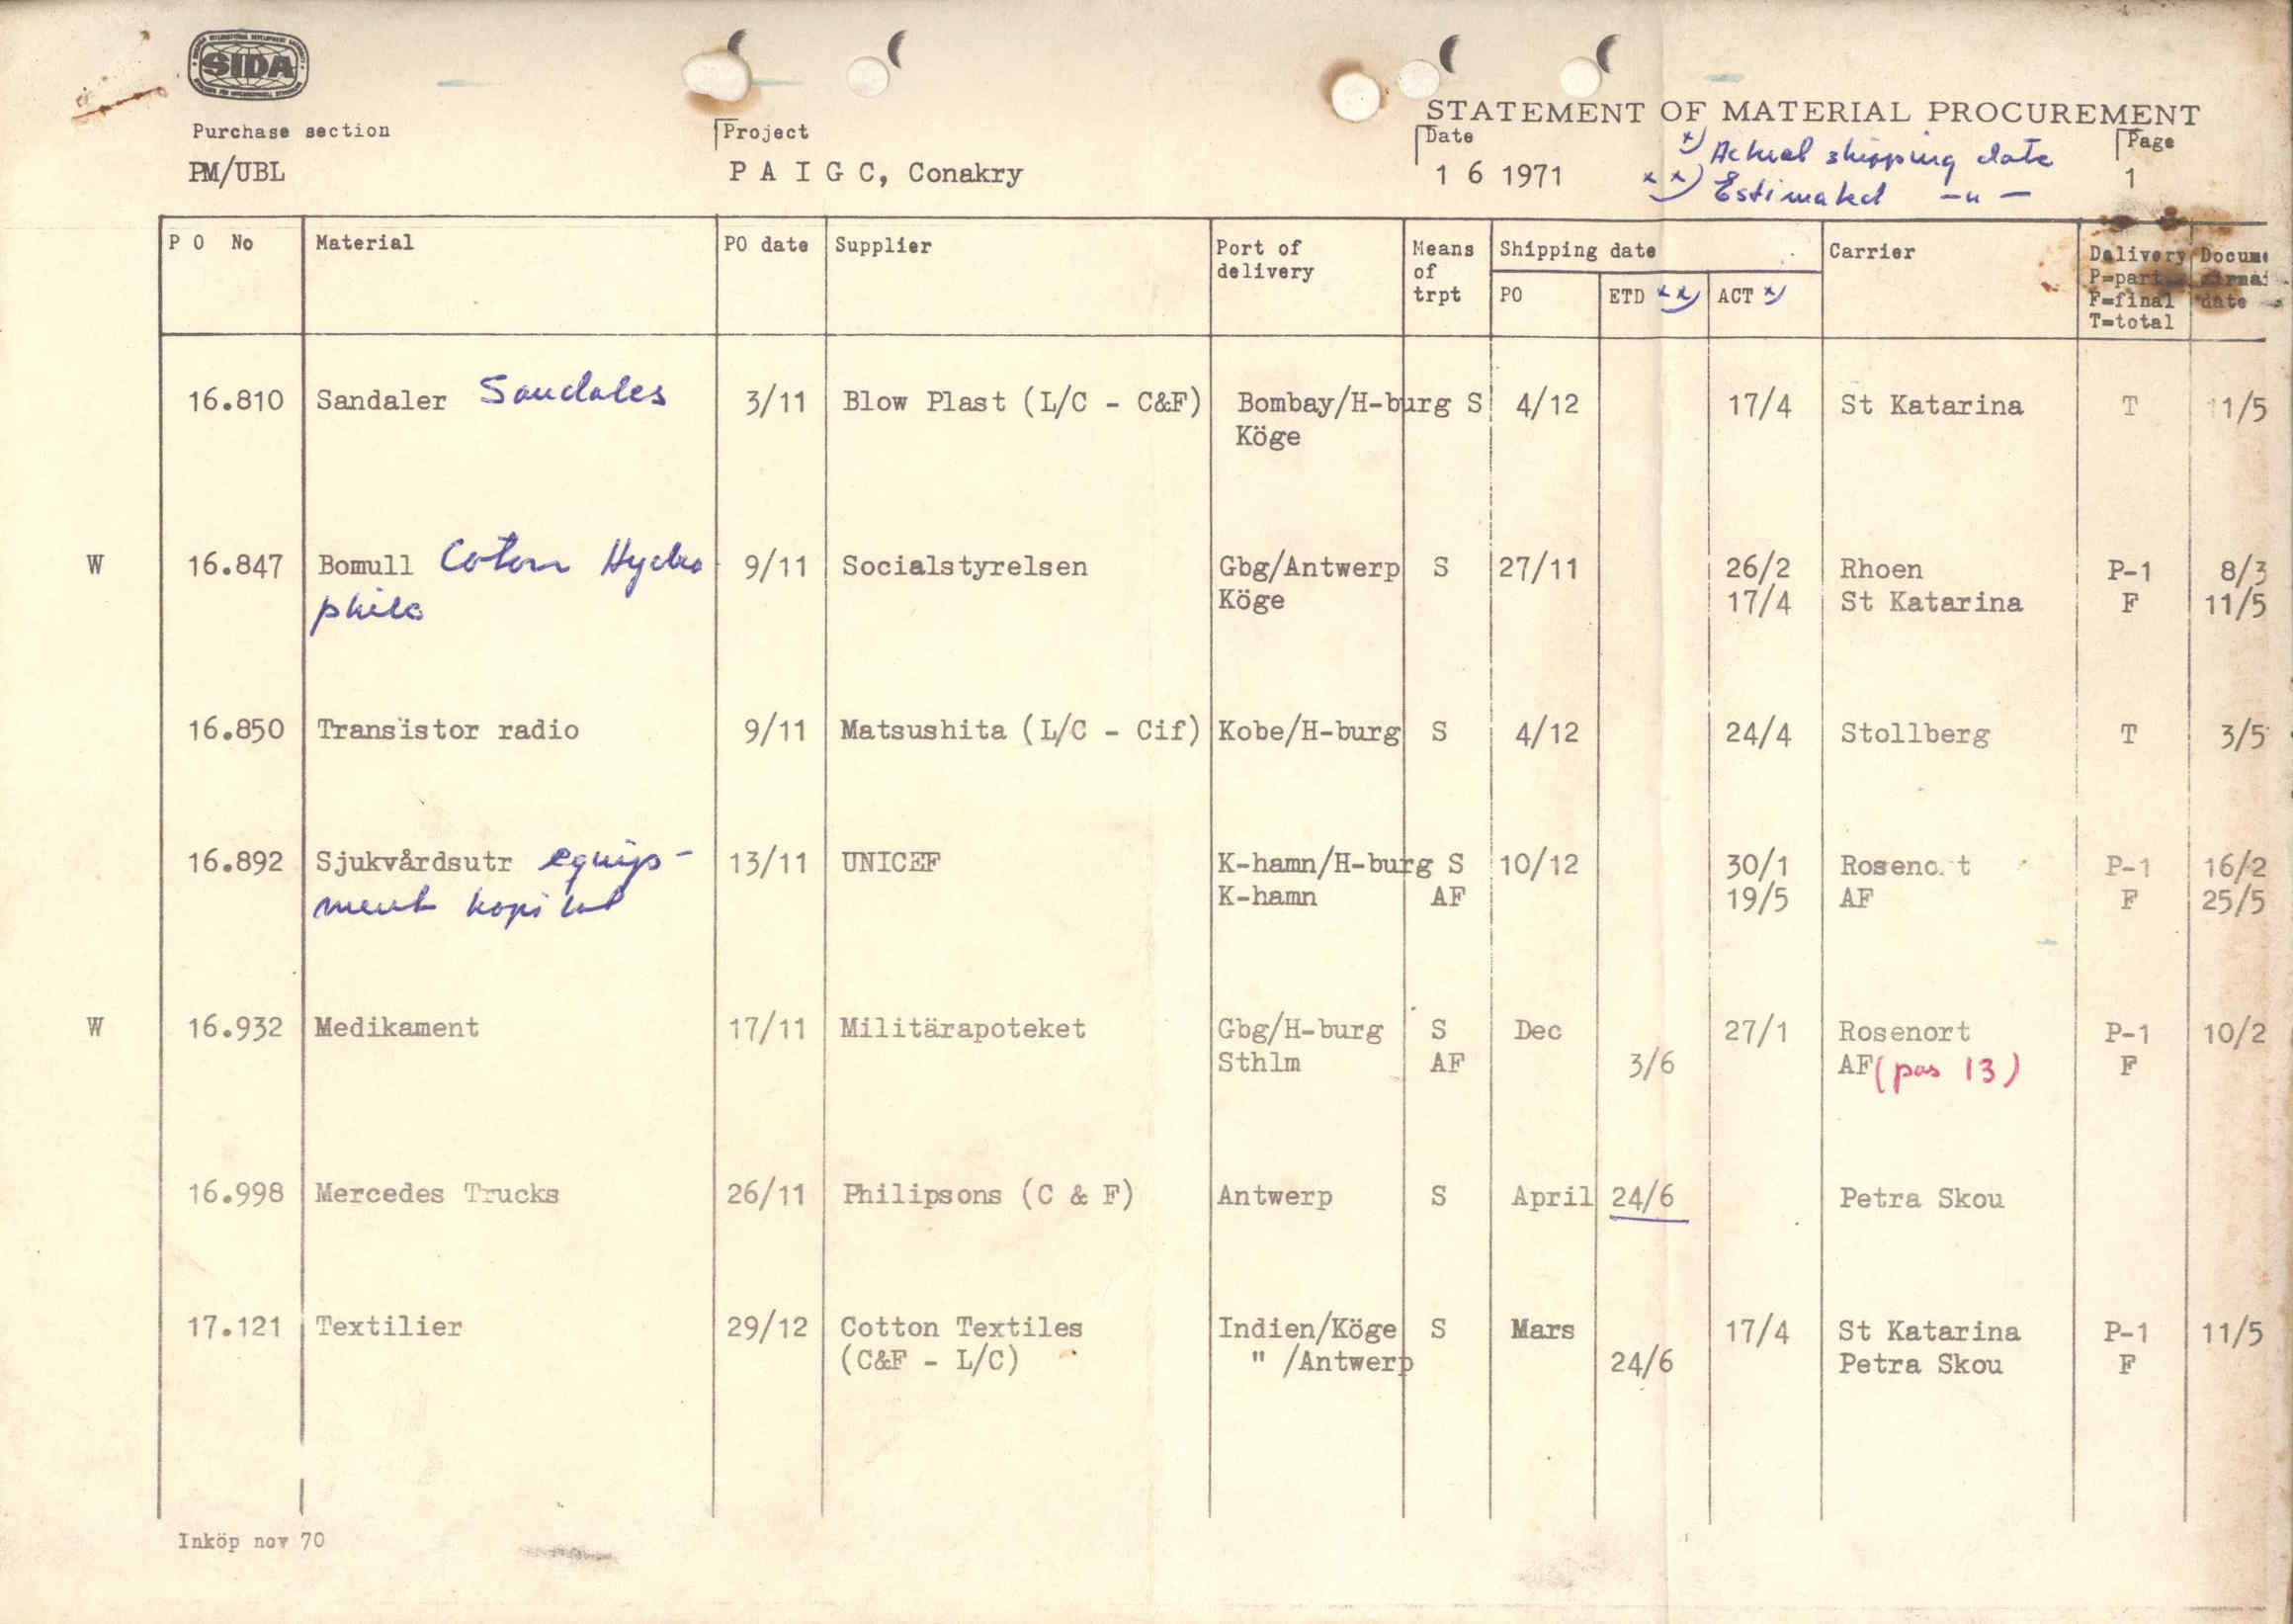 SIDA
STATEMENT OF MATERIAL PROCUREMENT
Purchase section Project Date Page
PM/UBL P A I G C, Conakry 1 6 1971 1
x) Actual shipping date
xx) Estimated -"-
P O No Material PO date Supplier Port of delivery Means of trpt Shipping date PO ETD xx) ACT x) Carrier Delivery P=part F=final T=total date
16.810 Sandaler Sandales 3/11 Blow Plast (L/C - C&F) Bombay/H-burg S 4/12 17/4 St Katarina T 11/5
Köge
W 16.847 Bomull Coton Hydro 9/11 Socialstyrelsen Gbg/Antwerp S 27/11 26/2 Rhoen P-1 8/3
phile Köge 17/4 St Katarina F 11/5
16.850 Transistor radio 9/11 Matsushita (L/C - Cif) Kobe/H-burg S 4/12 24/4 Stollberg T 3/5
16.892 Sjukvårdsutr equip- 13/11 UNICEF K-hamn/H-burg S 10/12 30/1 Rosenort P-1 16/2
ment K-hamn AF 19/5 AF F 25/5
W 16.932 Medikament 17/11 Militärapoteket Gbg/H-burg S Dec 27/1 Rosenort P-1 10/2
Sthlm AF 3/6 AF (pos 13) F
16.998 Mercedes Trucks 26/11 Philipsons (C & F) Antwerp S April 24/6 Petra Skou
17.121 Textilier 29/12 Cotton Textiles Indien/Köge S Mars 17/4 St Katarina P-1 11/5
(C&F - L/C) " /Antwerp 24/6 Petra Skou F
Inköp nov 70